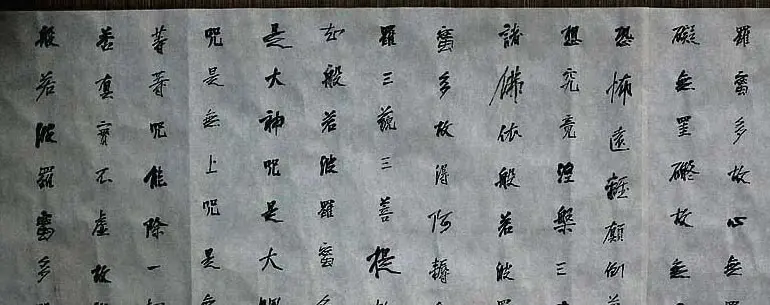 羅蜜多故心無
礙無罣礙故無
恐怖遠離顛倒
想究竟涅槃三
諸佛依般若波
蜜多故得阿耨
羅三藐三菩提
知般若波羅蜜多
是大神咒是大
咒是無上咒是無
等等咒能除一
苦真實不虛故
般若波羅蜜多